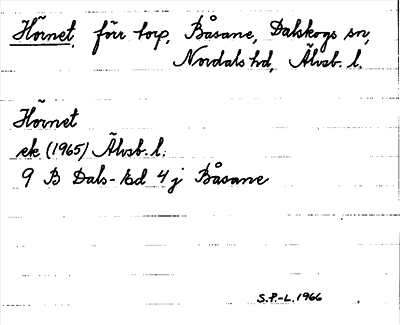 Hörnet, förr torp, Båsane, Dalskogs sn,
Nordals hd, Älvsb. l.
Hörnet
ek (1965) Älvsb. l.
9 B Dals-Ed 4 j Båsane
S.P.-L. 1966